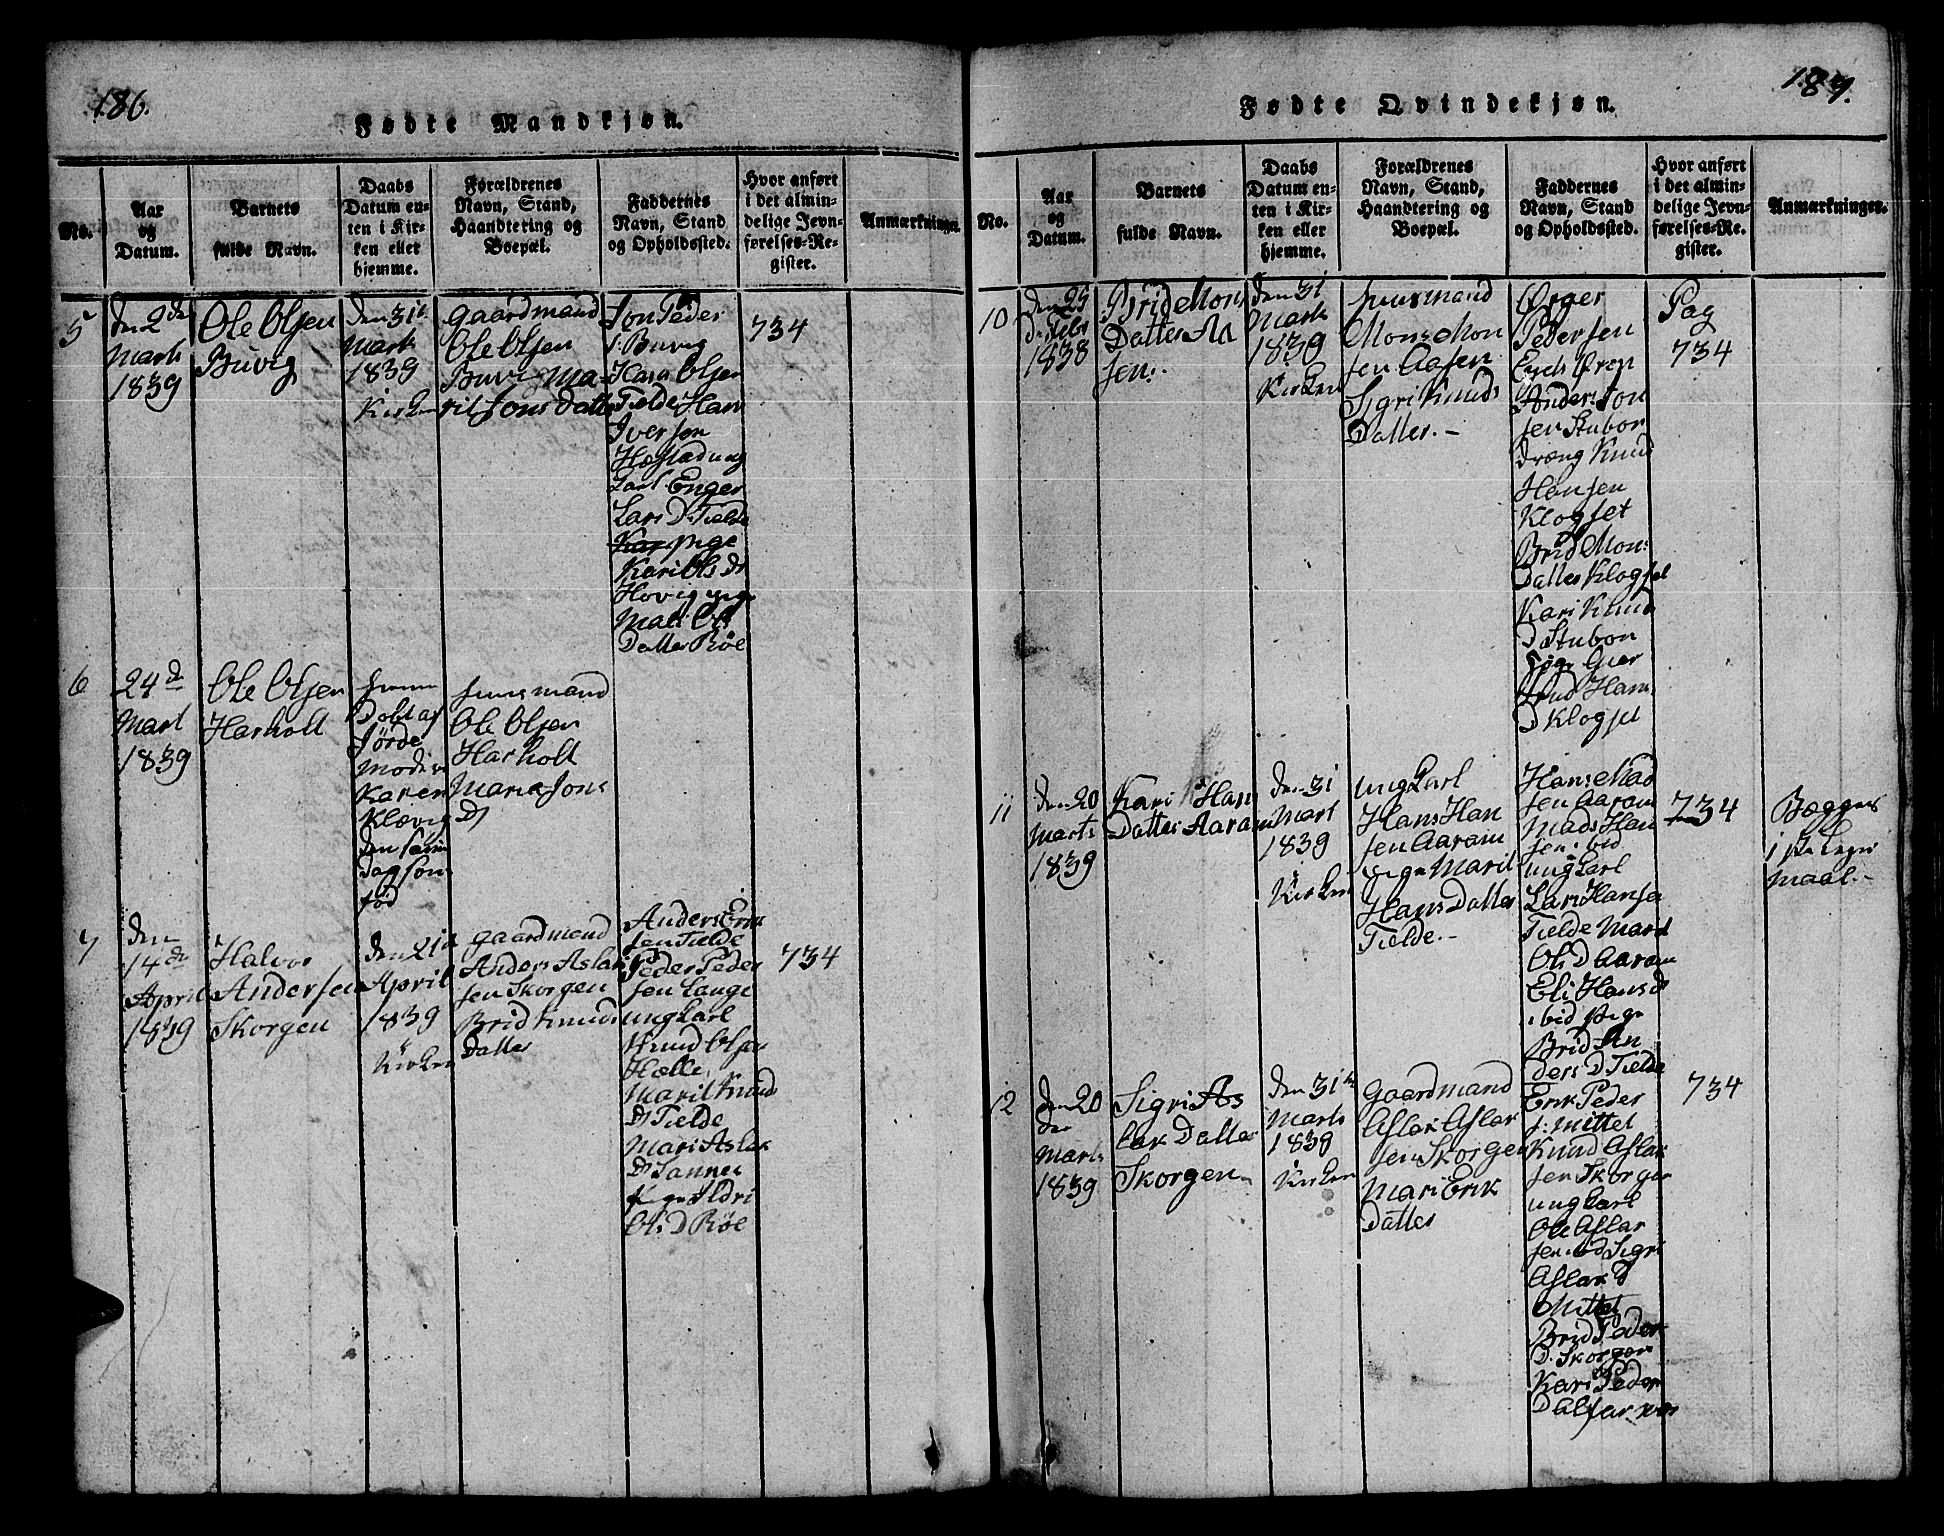 186.
Fødte Mandkjøn.
No.
Aar
og
Datum.
Barnets
fulde Navn.
Daabs
Datum en-
ten i Kir-
ken eller
hjemme.
Forældrenes
Navn, Stand,
Haandtering og
Boepæl.
Faddernes
Navn, Stand
og Opholdssted.
Hvor anført
i det almin-
delige Jevn-
førelses-Re-
gister.
Anmærkninger.
5
den 2de
Marts
1839
Ole Olsen
Buvig
den 31te
Marts
1839
Kirken
gaardmand
Ole Olsen
Buvi Ma-
rit Jons Datter
Jon Peder
s: Buvig
Olsen
Tielde Hans
Iversen
ung
Carl Enger
Lars D. Tielde
Kar pige
Kari Ols Dr
Hovig pige
Mari Ols
Datter Röe
734
6
24de
Mart
1839
Ole Olsen
Harholt
hiemme
Döbt af
Jorde
modr
Karen
Klævig
den samme
Dag som
föd
huusmand
Ole Olsen
Harholt
Maria Jons
Dr
7
den
14de
April
1839
Halvor
Andersen
Skorgen
den 21de
April
1839
Kirken
gaardmand
Anders Aslak
sen Skorgen
Brid Knuds
Datter
Anders Erik
sen Tielde
Peder Peder
sen Lange
ung Carl
Knud Olsen
Hælle
Marit Knud
Dr Tielde
Mari Aslak
Dr
pige Sldri
Ols D Röe
734
187.
Fødte Qvindekjøn.
No.
Aar
og
Datum.
Barnets
fulde Navn.
Daabs
Datum en-
ten i Kir-
ken eller
hjemme.
Forældrenes
Navn, Stand,
Haandtering og
Boepæl.
Faddernes
Navn, Stand
og Opholdssted.
Hvor anført
i det almin-
delige Jevn-
førelses-Re-
gister.
Anmærkninger.
10
den 25
1838
Brid Mons
Datter Aa
sen.
den 31
Marts
1839
Kirken
huusmand
Mons Mon
sen Aasen
Sigri Knuds
Datter.
Örger
Pedersen
Anders Jon
sen Stubon
dræng Knud
Hansen
Klogset
Brid Mons
Datter Klogset
Kari Knud
D Stubon
Hans
D Klogset
Pag
734
11
den 20
Marts
1839
Kari Hans
Datter Aaram
den 31
Mart
1839
Kirken
ung Carl
Hans Han
sen Aaram
pige Marit
Hans Datter
Tielde.
Hans Mad
sen Aaram
Mads Han
sen ibid
ung Carl
Lars Hansen
Tielde Marit
Ols D Aaram
Eli Hans D
ibid pige
Brid An
ders D Tielde
734
Begges
i ste Leger
maal.
12
den 20
de
Marts
1839
Sigri As
lak Datter
Skorgen
den 31te
Marts
1839
Kirken
gaardmand
Aslak Aslak
sen Skorgen
Mari Erik
Datter
Erik Peder
s: Mittet
Knud Aslak
sen Skorgen
ung Carl
Ole Aslak
sen ibid Sigri
Aslak D
Mittet
Brid Peder
D. Skorgen
Kari Peder
734